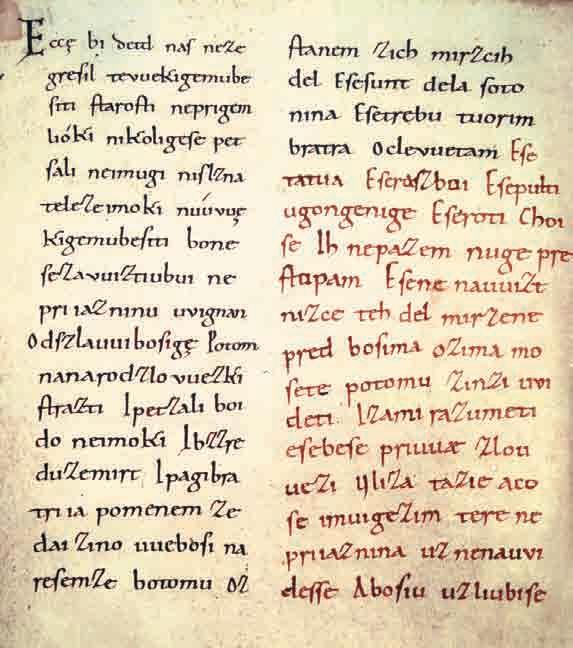 Eccę bi detd naſ neze
greſil tevuekigemube
ſiti ſtaroſti neprigem
lióki nikoligeſe pet
ſali neimugi niſlzna
telezeimoki nuúvuę
kigemubeſiti bone
ſezavuiztiubui ne
priiazninu uvignan
Odszlauuiboſigę Potom
nanarodzlovuezki
ſtrazti Ipetzali boi
do neimoki Ibzzre
duzemirt Ipagibra
triia pomenem ze
dai zino uuebóſi na
reſemze botomu oz
ſtanem zich mirzcih
del Eſeſunt dela ſoto
nina Eſetrebu tuorim
bratra Oclevuetam Eſe
tatua Eſerázboi Eſepulti
ugongenige Eſeroti Choi
ſe Ih nepazem nuge pre
ſtopam Eſene nauuizt
nizce teh del mirzene
pred boſima ozima mo
ſete potomu zinzi uvi
deti Izami razumeti
eſebeſe priuuæ zlou
uezi Iſliza tazie aco
ſe imuigezim tere ne
priiaznina uznenauvi
deſſe Aboſiu uzliubiſe